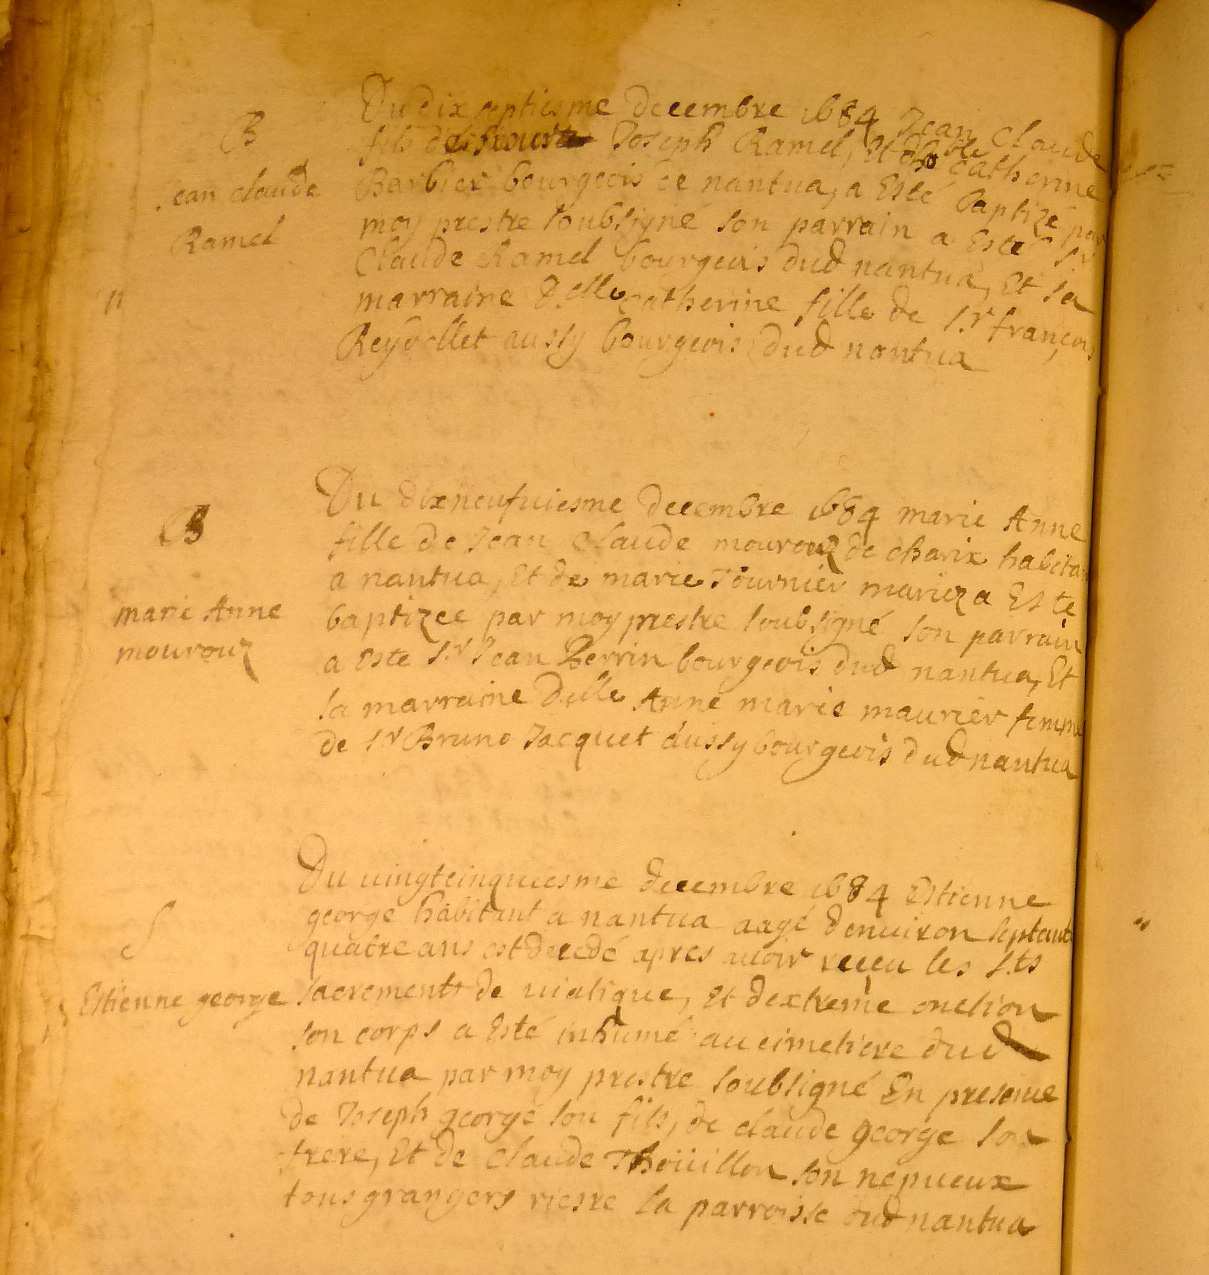 B
Jean Claude
Ramel
Du dix septiesme decembre 1684 Jean Claude
fils de Joseph Ramel, Et de dlle Catherine
Barbier bourgeois de nantua, a Esté baptizé par
moy prestre soubsigné son parrain a Esté Sr
Claude Ramel bourgeois dud nantua, Et sa
marraine dlle Catherine fille de Sr françois
Reydellet aussy bourgeois dud nantua
B
marie Anne
mourouz
Du dixneufuiesme decembre 1684 marie Anne
fille de Jean Claude mourouz de charix habitan
a nantua, Et de marie Tournier mariez a Esté
baptizee par moy prestre soubsigné son parrain
a esté Sr Jean Perrin bourgeois dud nantua, Et
sa marraine dlle Anne marie maurier femme
de Sr Bruno Jacquet aussy bourgeois dud nantua
S
Estienne george
Du uingtcinquiesme decembre 1684 Estienne
george habitant a nantua aagé denuiron septante
quatre ans est decedé apres auoir receu les Sts
sacrements de uiatique, Et dextreme onction
son corps a Esté inhumé au cimetiere dud
nantua par moy prestre soubsigné En presence
de Joseph george son fils, de claude george son
frere, Et de claude Thoüillon son nepueux
tous grangers riere la parroisse dud nantua